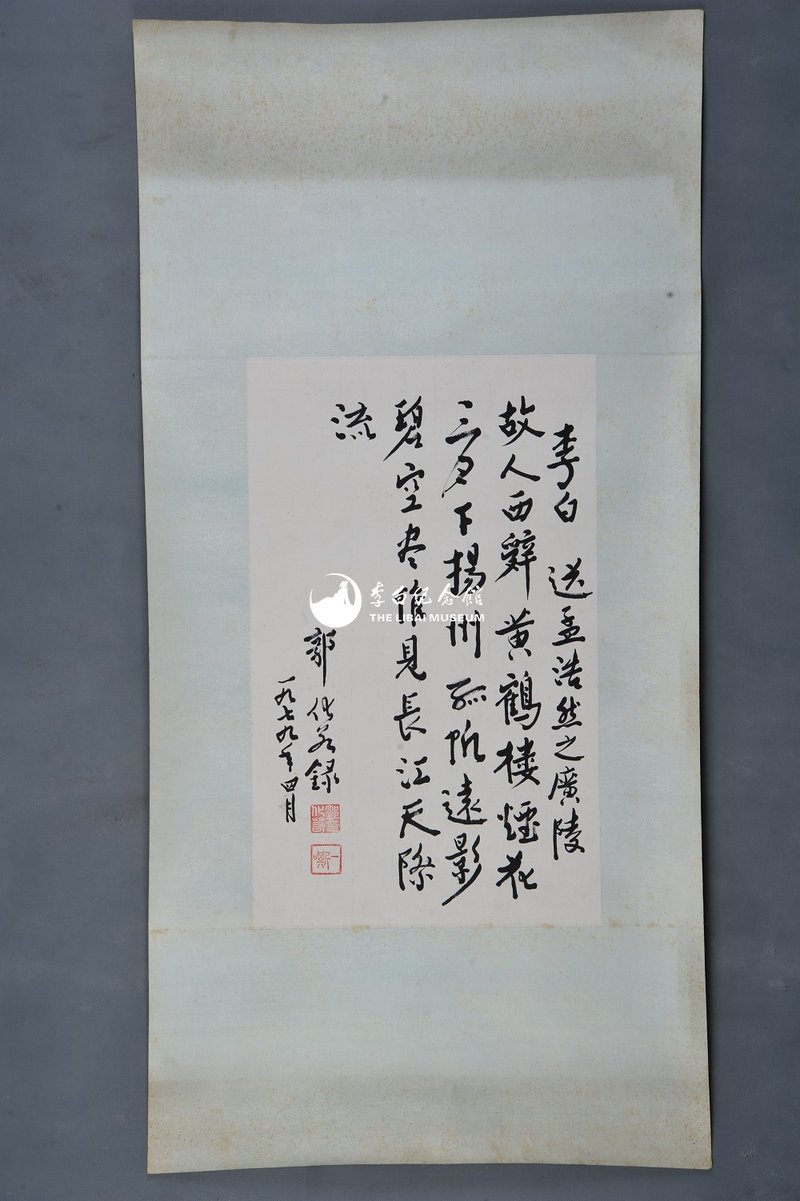 李白 送孟浩然之廣陵
故人西辞黄鶴楼煙花
三月下揚州孤帆遠影
碧空尽唯見長江天際
流
郭化若録
一九七九年四月
李白纪念馆
THE LIBAI MUSEUM